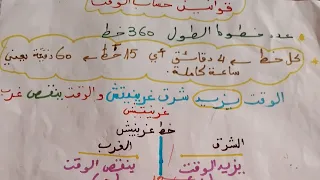 قوانين حساب الوقت
عدد خطوط الطول 360 خط
كل خط بـ 4 دقائق أي 15 خط بـ 60 دقيقة يعني
ساعة كاملة.
الوقت يزيد شرق غرينيتش والوقت ينقص غرب
غرينيتش
خط غرينيتش
الشرق
الغرب
يزيد الوقت
ينقص الوقت